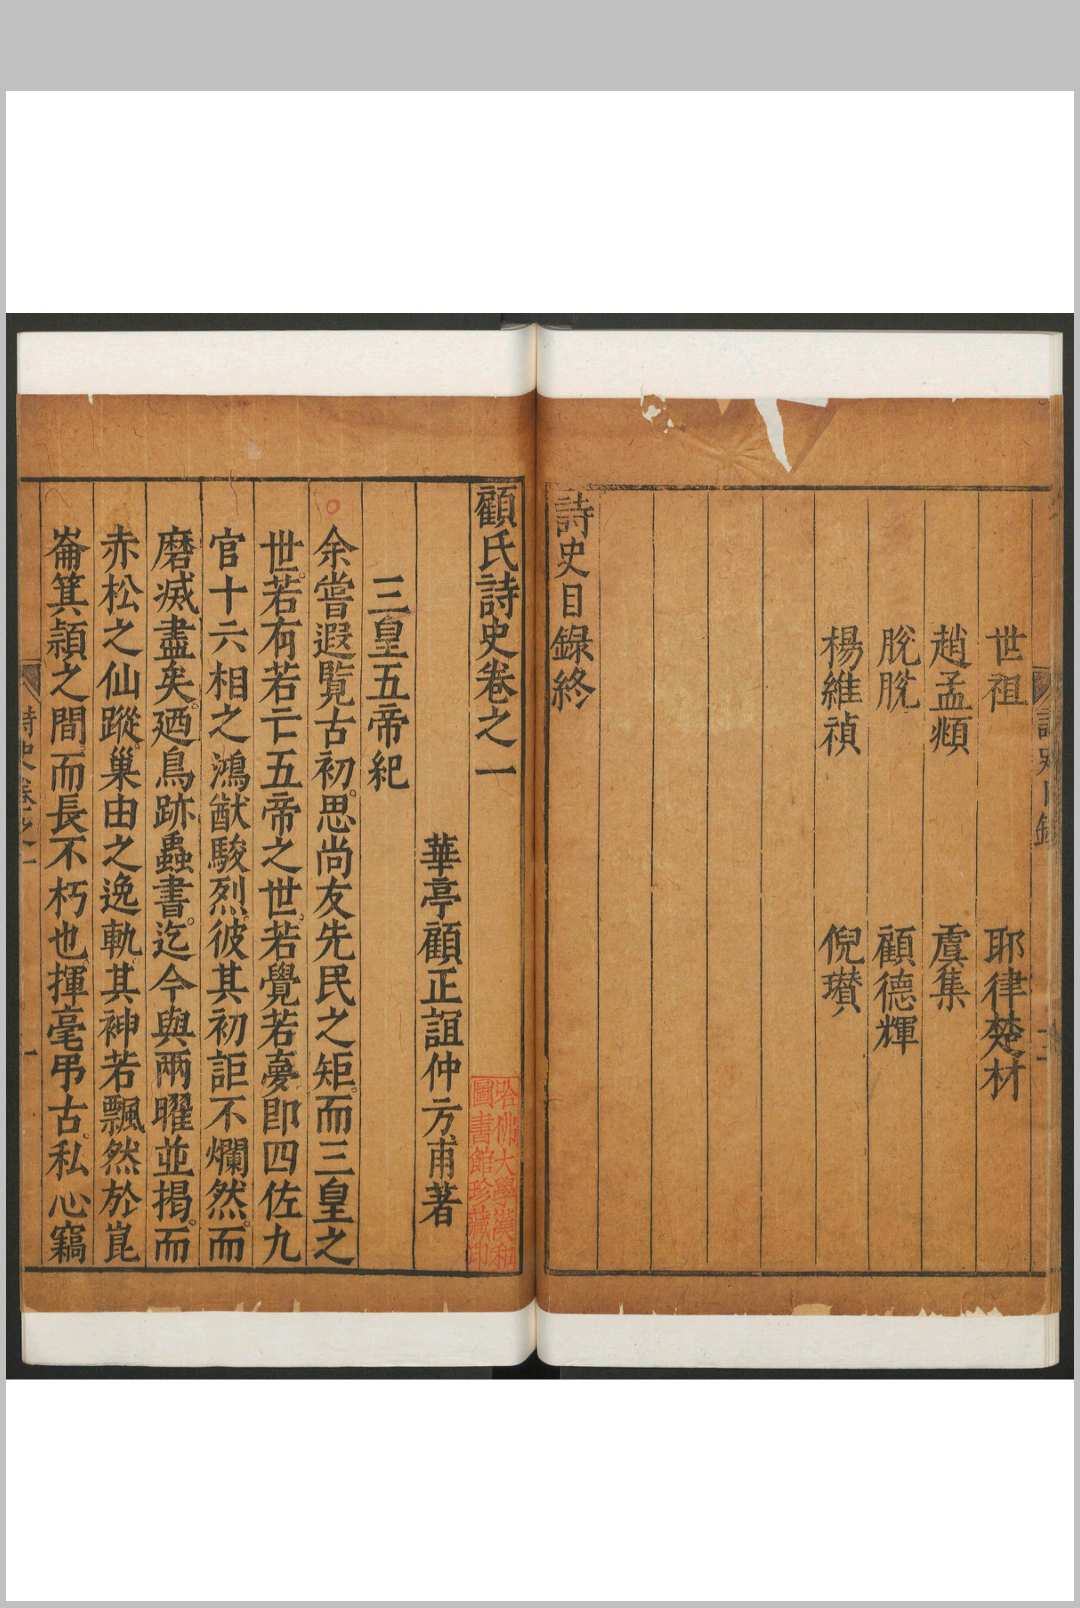 世祖　耶律楚材
趙孟頫　虞集
脫脫　顧德輝
楊維禎　倪瓚
詩史目録終
顧氏詩史卷之一
華亭顧正誼仲方甫著
三皇五帝紀
余嘗遐覽古初。思尚友先民之矩。而三皇之
世。若有若亡五帝之世。若覺若夢即四佐九
官十六相之鴻猷駿烈。彼其初詎不爛然。而
磨滅盡矣。廼鳥跡蟲書。迄今與兩曜並揭。而
赤松之仙蹤。巢由之逸軌其神若飄然於崑
崙箕潁之間。而長不朽也。揮毫弔古。私心竊
哈佛大學漢和
圖書館珍藏印
詩史目錄
詩史卷之一